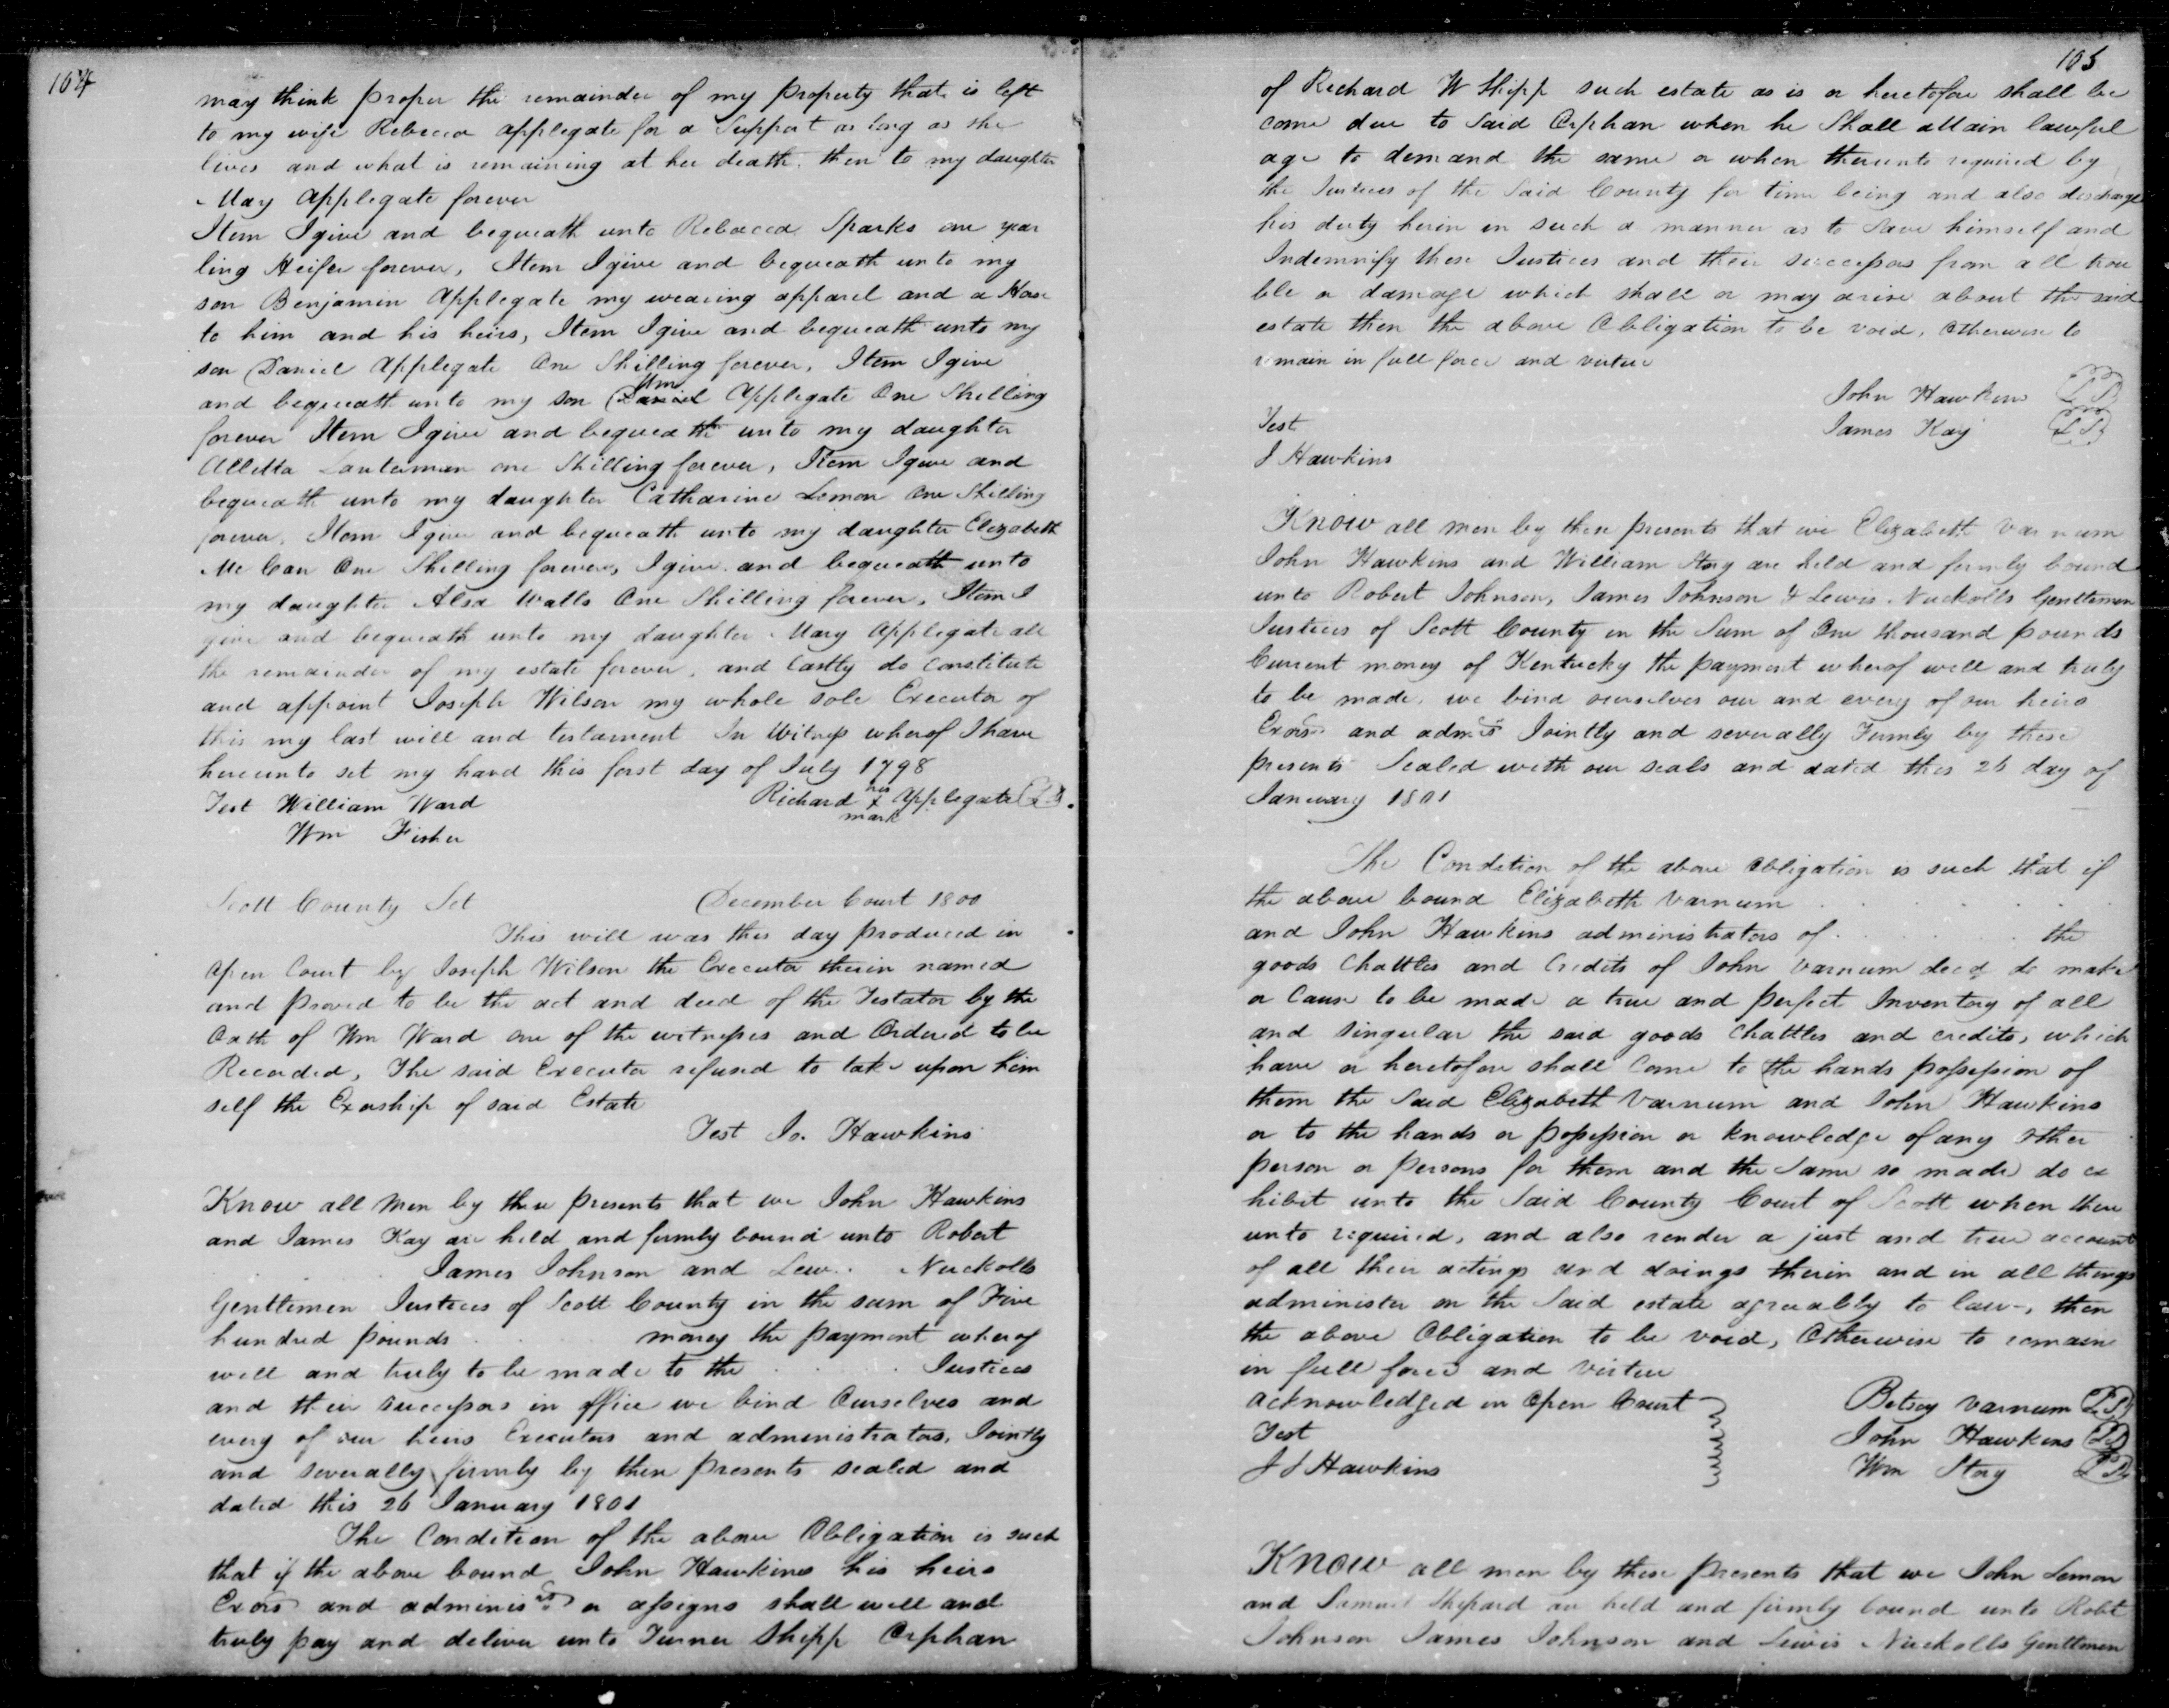 104
may think proper the remainder of my property that is left
to my wife Rebecca Applegate for a Support as long as she
lives and what is remaining at her death then to my daughter
May Applegate forever
Item I give and bequeath unto Rebecca Sparks one year
ling Heifer forever, Item I give and bequeath unto my
son Benjamin Applegate my wearing apparel and a Horse
to him and his heirs, Item I give and bequeath unto my
son Daniel Applegate One Shilling forever, Item I give
and bequeath unto my son Wm Applegate One Shilling
forever Item I give and bequeath unto my daughter
Alletta Lauterman one Shilling forever, Item I give and
bequeath unto my daughter Catharine Lemon One Shilling
forever, Item I give and bequeath unto my daughter Elizabeth
Mc Can One Shilling forever, I give and bequeath unto
my daughter Alsa Walls One Shilling forever, Item I
give and bequeath unto my daughter Mary Applegate all
the remainder of my estate forever, and lastly do constitute
and appoint Joseph Wilson my whole sole Executor of
this my last will and testament In Witness wherof I have
hereunto set my hand this first day of July 1798
Test William Ward Richard his x mark Applegate LS
Wm Fisher
Scott County Sct December Court 1800
This will was this day produced in
Open Court by Joseph Wilson the Executor therin named
and proved to be the act and deed of the Testator by the
Oath of Wm Ward one of the witnesses and Ordered to be
Recorded, The said Executor refused to take upon him
self the Exorship of said Estate
Test Jo. Hawkins
Know all Men by these presents that we John Hawkins
and James Kay are held and firmly bound unto Robert
James Johnson and Lew.. Nuckolls
Gentlemen Justices of Scott County in the sum of Five
hundred pounds money the payment wherof
well and truly to be made to the Justices
and their successors in office we bind Ourselves and
every of our heirs Executors and administrators, Jointly
and severally firmly by these presents sealed and
dated this 26 January 1801
The Condition of the above Obligation is such
that if the above bound John Hawkins his heirs
Exors and administrs or assigns shall well and
truly pay and deliver unto Turner Shipp Orphan
105
of Richard W Shipp such estate as is or heretofore shall be
come due to Said Orphan when he Shall attain lawful
age to demand the same or when thereunto required by
the Justices of the Said County for time being and also discharge
his duty herin in such a manner as to save himself and
Indemnify these Justices and their successors from all trou
ble or damage which shall or may arise about the said
estate then the above Obligation to be void, Otherwise to
remain in full force and virtue
John Hawkins LS
Test James Kay LS
J Hawkins
Know all men by these presents that we Elizabeth Varnum
John Hawkins and William Story are held and firmly bound
unto Robert Johnson, James Johnson & Lewis Nuckolls Gentlemen
Justices of Scott County in the Sum of One thousand pounds
Current money of Kentucky the payment wherof well and truly
to be made, we bind ourselves our and every of our heirs
Exors and admrs Jointly and severally Firmly by these
presents Sealed with our seals and dated this 26 day of
January 1801
The Condition of the above obligation is such that if
the above bound Elizabeth Varnum
and John Hawkins administrators of the
goods Chattles and Credits of John Varnum decd do make
or Cause to be made a true and perfect Inventory of all
and singular the said goods Chattles and credits, which
have or heretofore shall Come to the hands possession of
them the Said Elizabeth Varnum and John Hawkins
or to the hands or possession or knowledge of any other
person or persons for them and the Same so made do ex
hibit unto the Said County Court of Scott when there
unto required, and also render a just and true account
of all their actings and doings therin and in all things
administer on the Said estate agreeably to law, then
the above Obligation to be void, Otherwise to remain
in full force and virtue
acknowledged in Open Court Betsey Varnum LS
Test John Hawkins LS
J J Hawkins Wm Story LS
Know all men by these presents that we John Lemon
and Samuel Shepard are held and firmly bound unto Robt
Johnson James Johnson and Lewis Nuckolls Gentlemen